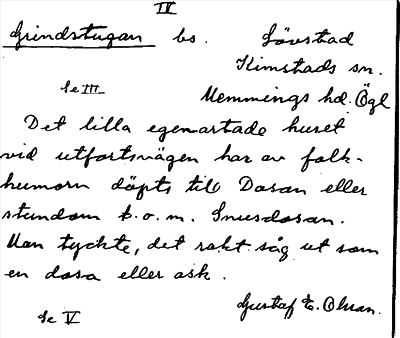 IV
Grindstugan bs. Lövstad
Kimstads sn.
Se III
Memmings hd. Ögl
Det lilla egenartade huset
vid utfartsvägen har av folk-
humorn döpts till Dosan eller
stundom t.o.m. Snusdosan.
Man tyckte, det rakt såg ut som
en dosa eller ask.
Gustaf E. Olson.
Se V